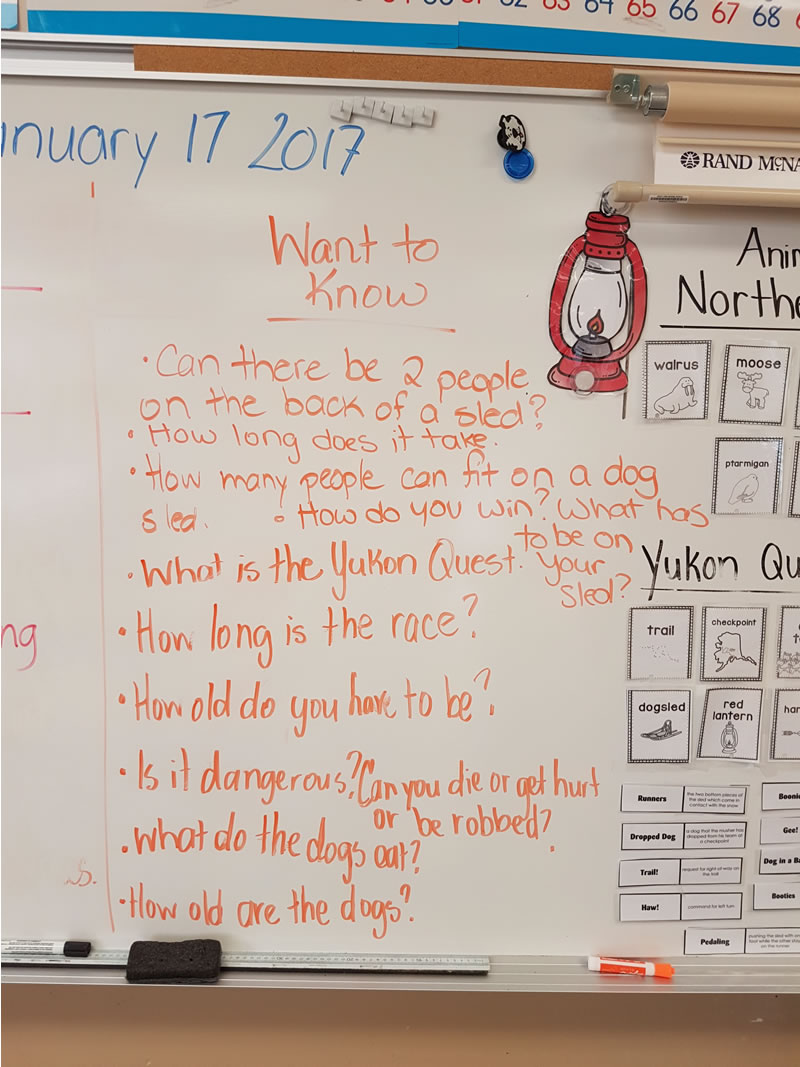 62 63 64 65 66 67 68
anuary 17 2017
RAND MCNA
Want to
Know
• Can there be 2 people
on the back of a sled?
• How long does it take.
• How many people can fit on a dog
sled. • How do you win? What has
to be on
• What is the Yukon Quest. your
sled?
• How long is the race?
• How old do you have to be?
• Is it dangerous? Can you die or get hurt
or be robbed?
• What do the dogs eat?
• How old are the dogs?
ng
S.
Anim
Northe
walrus
moose
ptarmigan
Yukon Qu
trail
checkpoint
dogsled
red
lantern
har
Runners
the two bottom pieces of
the sled which come in
contact with the snow
Boonie
Dropped Dog
a dog that the musher has
dropped from his team at
a checkpoint
Gee!
Trail!
request for right of way on
the trail
Dog in a Ba
Haw!
command for left turn
Booties
Pedaling
pushing the sled with one
foot while the other stays
on the runner